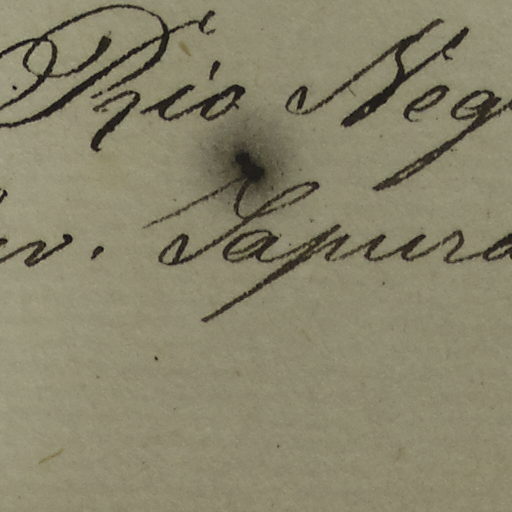 Rio Neg
v. Sapura